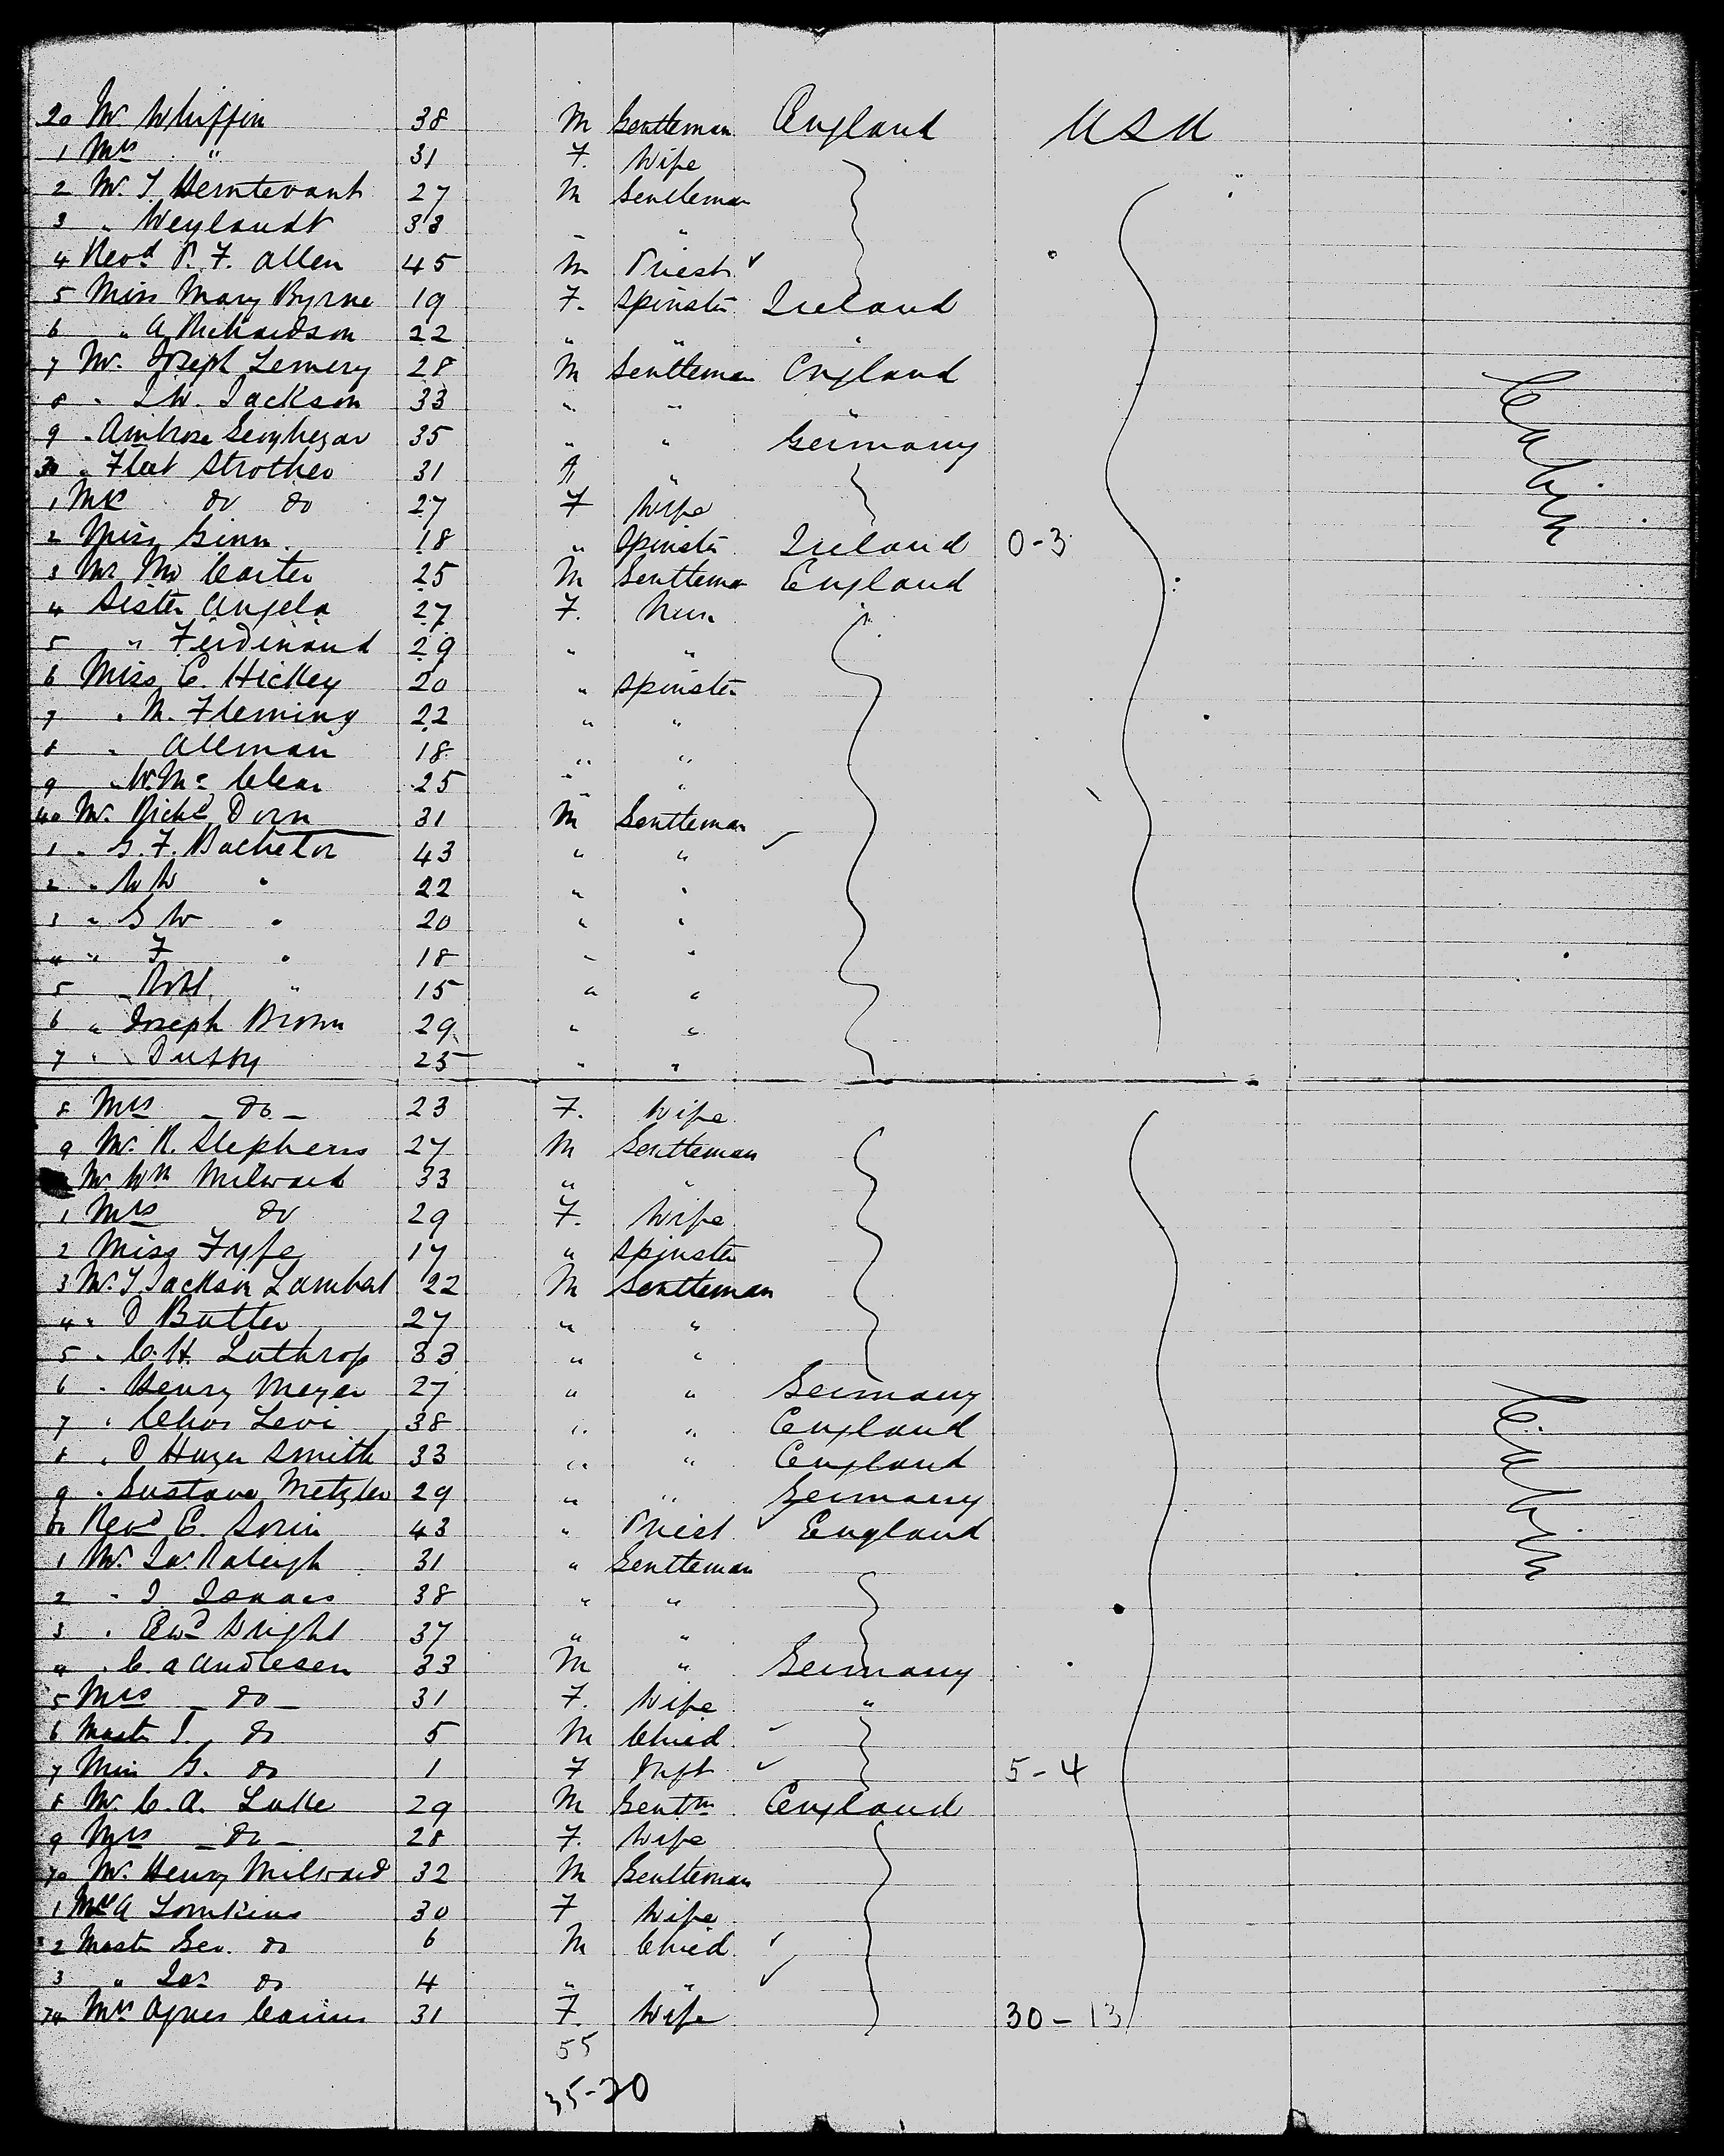 20 Mr Whiffin 38 M Gentleman England USA
1 Mrs " 31 F. Wife
2 Mr. J. 27 M Gentleman
3 " Weylandt 33 " "
4 Revd P. F. Allen 45 M Priest ✓
5 Miss Mary Byrne 19 F. Spinster Ireland
6 " A Richardson 22 " " "
7 Mr. Joseph Lemery 28 M Gentleman England
8 " J W. Jackson 33 " " "
9 " Ambrose 35 " " Germany
30 " Fleet Strother 31 M "
1 Mrs do do 27 F Wife
2 Miss Ginn 18 " Spinster Ireland 0-3
3 Mr Carter 25 M Gentleman England
4 Sister Angela 27 F. Nun "
5 " Ferdinand 29 " "
6 Miss C. Hickey 20 " Spinster
7 " M. Fleming 22 " "
8 " Allman 18 " "
9 " W. Mc Clear 25 " "
40 Mr. Richd Dorn 31 M Gentleman
1 " G. F. Bachelor 43 " " ✓
2 " W W " 22 " "
3 " G W " 20 " "
4 " F " 18 " "
5 " Robt. " 15 " "
6 " Joseph Brown 29 " "
7 " Duffy 25 " "
8 Mrs - do - 23 F. Wife
9 Mr. R. Stephens 27 M Gentleman
Mr. Wm Milward 33 " "
1 Mrs do 29 F. Wife
2 Miss Fyfe 17 " Spinster
3 Mr. J Jackson Lambert 22 M Gentleman
4 " D Butler 27 " "
5 " C. H. Lathrop 33 " "
6 " Henry Meyer 27 " " Germany
7 " Chas Levi 38 " " England
8 " D Huger Smith 33 " " England
9 " Gustave Metzler 29 " " Germany
60 Revd E. Sorin 43 " Priest ✓ England
1 Mr. Jas. Raleigh 31 " Gentleman
2 " J. Isaacs 38 " "
3 " Edwd Wright 37 " "
4 " C. A Andresen 33 M " Germany
5 Mrs - do - 31 F. Wife "
6 Master J. do 5 M Child ✓
7 Miss G. do 1 F Inft ✓ 5-4
8 Mr. C. A. Luke 29 M Gentm England
9 Mrs - do - 28 F. Wife
70 Mr. Henry Milward 32 M Gentleman
1 Mrs A Tomkins 30 F Wife
2 Master Geo. do 6 M Child ✓
3 " Jas do 4 " " ✓
74 Mrs Agnes Cairns 31 F. Wife 30-13
55
35-20
Cabin
Cabin